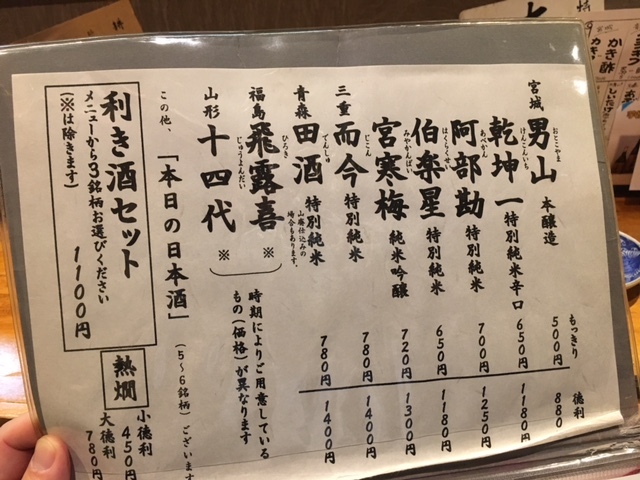 もっきり
徳利
宮城
男山
おとこやま
本醸造
500円
880
乾坤一
けんこんいち
特別純米辛口
650円
1180円
阿部勘
あべかん
特別純米
700円
1250円
伯楽星
はくらくせい
特別純米
650円
1180円
宮寒梅
みやかんばい
純米吟醸
720円
1300円
三重
而今
じこん
特別純米
780円
1400円
青森
田酒
でんしゅ
特別純米
山廃仕込みの
場合もあります。
780円
1400円
福島
飛露喜
ひろき
※
山形
十四代
じゅうよんだい
※
時期によりご用意している
もの(価格)が異なります
この他、「本日の日本酒」(5〜6銘柄)ございます
利き酒セット
メニューから3銘柄お選びください
(※は除きます)
1100円
熱燗
小徳利 450円
大徳利 780円
かき酢